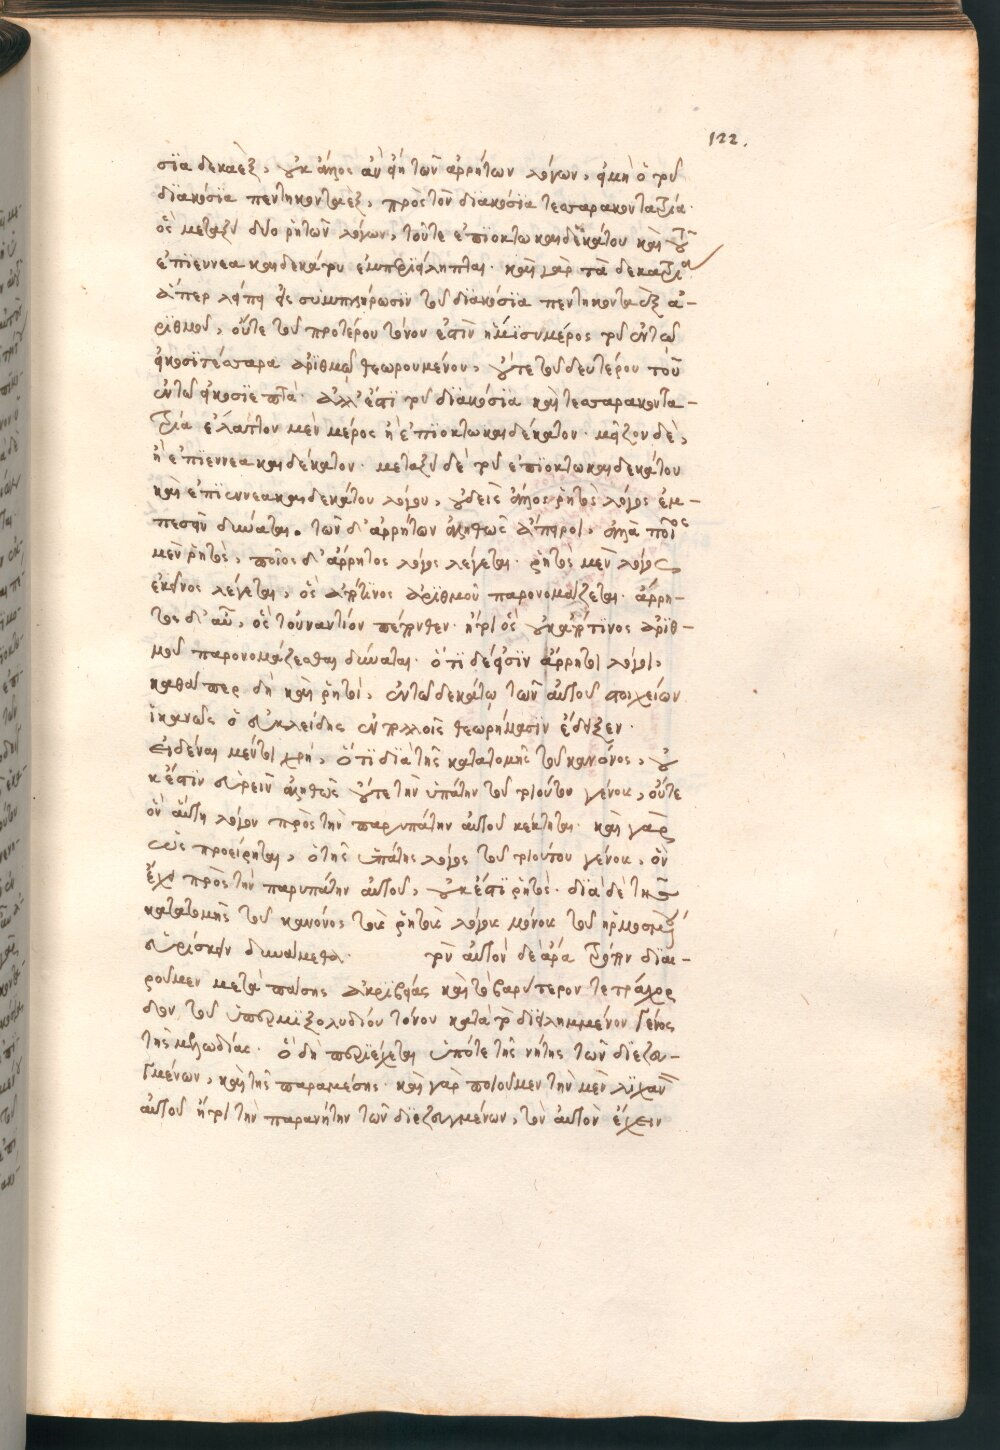 122.
σϊα δεκαὲξ, οὐκ ἄλλος ἂν εἴη τῶν ἀρρήτων λόγων, εἰ μὴ ὁ τοῦ
διακόσϊα πεντηκονταὲξ, πρὸς τὸν διακόσϊα τεσσαρακοντατρία·
ὃς μεταξὺ δύο ῥητῶν λόγων, τοῦτε ἐπϊοκτωκαιδεκάτου καὶ τοῦ
ἐπϊεννεακαιδεκάτου ἐμπεριείληπται· καὶ γὰρ τὰ δεκατρία
ἅπερ λείπει εἰς συμπλήρωσϊν τοῦ διακόσϊα πεντηκονταὲξ ἀ-
ρϊθμοῦ, οὔτε τοῦ προτέρου τόνου ἐστὶν ἡμϊσυμέρος τοῦ ἐν τῷ
εἰκοσϊτέσσαρα ἀρϊθμῷ θεωρουμένου, οὔτε τοῦ δευτέρου τοῦ
ἐν τῷ εἰκοσϊεπτά· ἀλλ' ἔστϊ τοῦ διακόσϊα καὶ τεσσαρακοντα-
τρία ἔλαττον μὲν μέρος ἢ ἐπϊοκτωκαιδέκατον· μεῖζον δὲ,
ἢ ἐπϊεννεακαιδέκατον· μεταξὺ δὲ τοῦ ἐπϊοκτωκαιδεκάτου
καὶ ἐπϊεννεακαιδεκάτου λόγου, οὐδεὶς ἄλλος ῥητὸς λόγος ἐμ-
πεσεῖν δύναται. τῶν δ' ἀρρήτων ἀληθῶς ἄπειροι, ἀλλὰ ποῖος
μὲν ῥητὸς, ποῖος δ' ἄρρητος λόγος λέγεται· ῥητὸς μὲν λόγος
ἐκεῖνος λέγεται, ὃς ἀπό τϊνος ἀρϊθμοῦ παρονομάζεται· ἄρρη-
τος δ' αὖ, ὃς τοὐναντίον πέπονθεν· ἤτοι ὃς οὐκ ἀπό τϊνος ἀρϊθ-
μοῦ παρονομάζεσθαι δύναται· ὅτϊ δέ εἰσϊν ἄρρητοι λόγοι,
καθάπερ δὴ καὶ ῥητοὶ, ἐν τῷ δεκάτῳ τῶν αὐτοῦ στοιχείων
ἱκανῶς ὁ εὐκλείδης ἐν πολλοῖς θεωρήμασϊν ἔδειξεν·
εἰδέναι μέντοι χρὴ, ὅτϊ διὰ τῆς κατατομῆς τοῦ κανόνος, οὐ
κ ἔστϊν εὑρεῖν ἀληθῶς οὔτε τὴν ὑπάτην τοῦ τοιούτου γένους, οὔτε
ὃν αὕτη λόγον πρὸς τὴν παρυπάτην αὐτοῦ κέκτηται· καὶ γὰρ
ὡς προείρηται, ὁ τῆς ὑπάτης λόγος τοῦ τοιούτου γένους, ὃν
ἔχει πρὸς τὴν παρυπάτην αὐτοῦ, οὐκ ἔστϊ ῥητὸς· διὰ δὲ τῆς
κατατομῆς τοῦ κανόνος τοὺς ῥητοὺς λόγους μόνους τοῦ ἡρμοσμένου
εὑρίσκειν δυνάμεθα· τὸν αὐτὸν δὲ ἄρα τρόπον διαι-
ροῦμεν μετὰ πάσης ἀκριβείας καὶ τὸ βαρύτερον τετράχορ
δον, τοῦ ὑπερμϊξολυδίου τόνου κατὰ τὸ διειλημμένον γένος
τῆς μελωδίας· ὃ δὴ περϊέχεται ὑπό τε τῆς νήτης τῶν διεζευ-
γμένων, καὶ τῆς παραμέσης· καὶ γὰρ ποιοῦμεν τὴν μὲν λϊχανὸν
αὐτοῦ ἤτοι τὴν παρανήτην τῶν διεζευγμένων, τὸν αὐτὸν ἔχειν